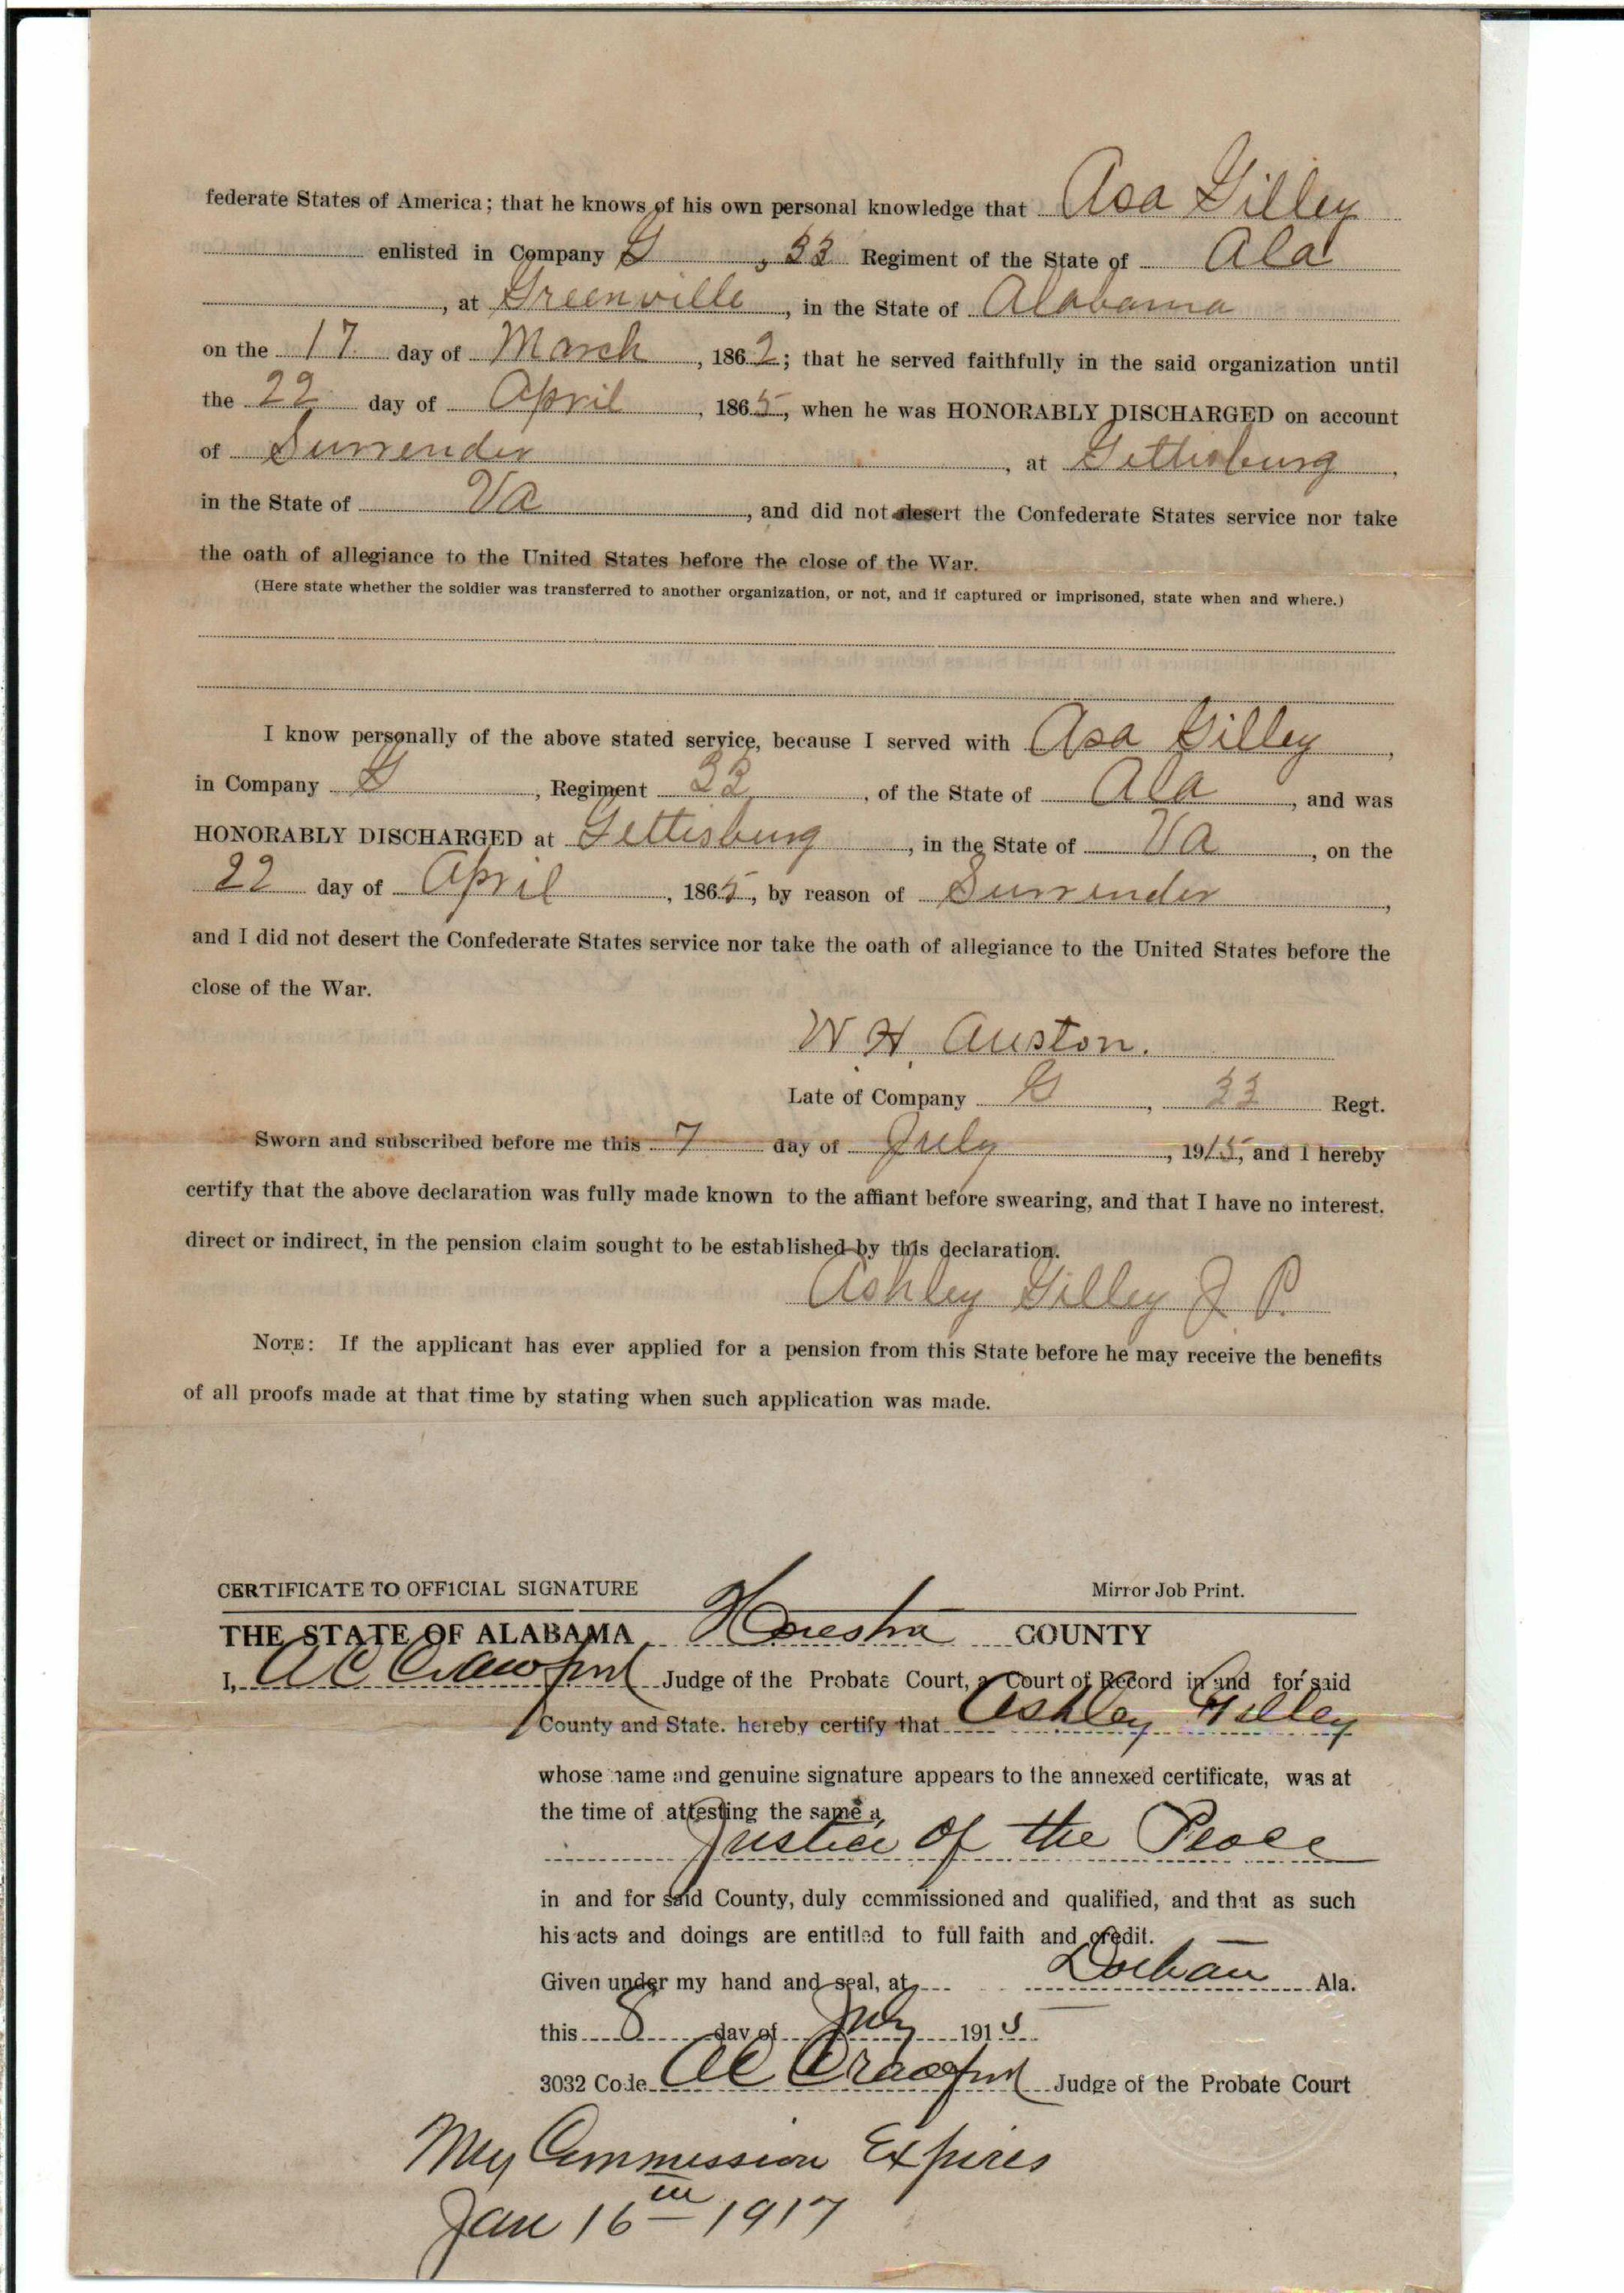 federate States of America; that he knows of his own personal knowledge that Asa Gilley
enlisted in Company G, 33 Regiment of the State of Ala
, at Greenville, in the State of Alabama
on the 17 day of March, 1862; that he served faithfully in the said organization until
the 22 day of April, 1865, when he was HONORABLY DISCHARGED on account
of Surrender, at Gettisburg,
in the State of Va, and did not desert the Confederate States service nor take
the oath of allegiance to the United States before the close of the War.
(Here state whether the soldier was transferred to another organization, or not, and if captured or imprisoned, state when and where.)
I know personally of the above stated service, because I served with Asa Gilley,
in Company G, Regiment 33, of the State of Ala, and was
HONORABLY DISCHARGED at Gettisburg, in the State of Va, on the
22 day of April, 1865, by reason of Surrender,
and I did not desert the Confederate States service nor take the oath of allegiance to the United States before the
close of the War.
W. H. Auston.
Late of Company G, 33 Regt.
Sworn and subscribed before me this 7 day of July, 1915, and I hereby
certify that the above declaration was fully made known to the affiant before swearing, and that I have no interest,
direct or indirect, in the pension claim sought to be established by this declaration.
Ashley Gilley J. P.
NOTE: If the applicant has ever applied for a pension from this State before he may receive the benefits
of all proofs made at that time by stating when such application was made.
CERTIFICATE TO OFFICIAL SIGNATURE Mirror Job Print.
THE STATE OF ALABAMA Houston COUNTY
I, A C Crawford Judge of the Probate Court, a Court of Record in and for said
County and State. hereby certify that Ashley Gilley
whose name and genuine signature appears to the annexed certificate, was at
the time of attesting the same a
Justice of the Peace
in and for said County, duly commissioned and qualified, and that as such
his acts and doings are entitled to full faith and credit.
Given under my hand and seal, at Dothan Ala.
this 8 day of July 1915
3032 Code A C Crawford Judge of the Probate Court
My Commission Expires
Jan 16th 1917